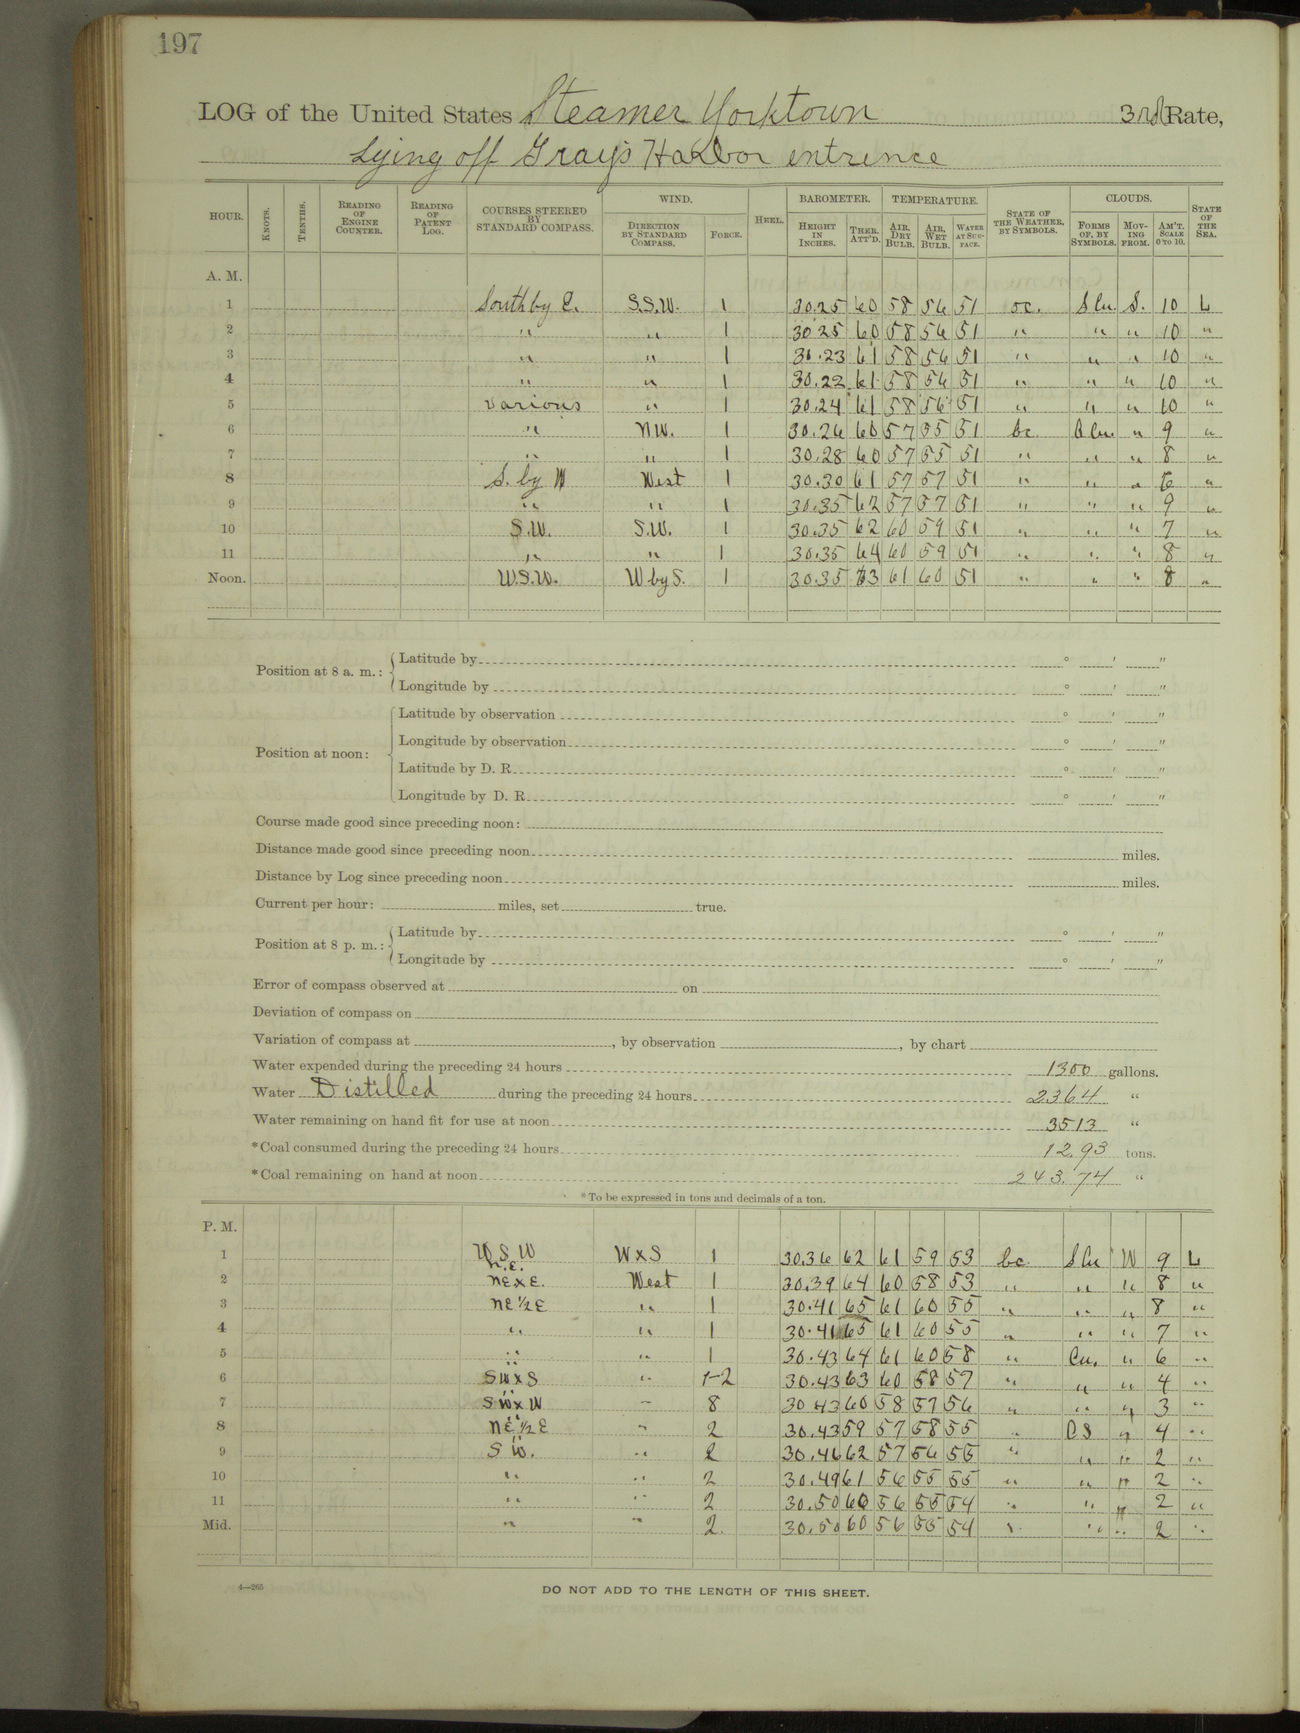 197
LOG of the United States Steamer Yorktown 3rd Rate,
Lying off Gray's Harbor entrence
HOUR. KNOTS. TENTHS. READING OF ENGINE COUNTER. READING OF PATENT LOG. COURSES STEERED BY STANDARD COMPASS. WIND. DIRECTION BY STANDARD COMPASS. FORCE. HEEL. BAROMETER. HEIGHT IN INCHES. THER. ATT'D. TEMPERATURE. AIR, DRY BULB. AIR, WET BULB. WATER AT SURFACE. STATE OF THE WEATHER, BY SYMBOLS. CLOUDS. FORMS OF, BY SYMBOLS. MOVING FROM. AM'T. SCALE 0 TO 10. STATE OF THE SEA.
A. M.
1 South by E. S.S.W. 1 30.25 60 58 56 51 oc. S Cu. S. 10 L
2 " " 1 30 25 60 58 56 51 " " " 10 "
3 " " 1 30.23 61 58 56 51 " " " 10 "
4 " " 1 30.22 61 58 56 51 " " " 10 "
5 various " 1 30.24 61 58 56 51 " " " 10 "
6 " NW. 1 30.26 60 57 55 51 bc " 9 "
7 " " 1 30.28 60 57 55 51 " " " 8 "
8 S. by W West 1 30.30 61 57 57 51 " " " 6 "
9 " " 1 30.35 62 57 57 51 " " " 9 "
10 S.W. S.W. 1 30.35 62 60 59 51 " " " 7 "
11 " " 1 30.35 64 60 59 51 " " " 8 "
Noon. W.S.W. W by S. 1 30.35 63 61 60 51 " " " 8 "
Position at 8 a. m.: Latitude by ° ′ ″
Longitude by ° ′ ″
Position at noon: Latitude by observation ° ′ ″
Longitude by observation ° ′ ″
Latitude by D. R. ° ′ ″
Longitude by D. R. ° ′ ″
Course made good since preceding noon:
Distance made good since preceding noon miles.
Distance by Log since preceding noon miles.
Current per hour: miles, set true.
Position at 8 p. m.: Latitude by ° ′ ″
Longitude by ° ′ ″
Error of compass observed at on
Deviation of compass on
Variation of compass at , by observation , by chart
Water expended during the preceding 24 hours 1300 gallons.
Water Distilled during the preceding 24 hours 2364 "
Water remaining on hand fit for use at noon 3513 "
*Coal consumed during the preceding 24 hours 12.93 tons.
*Coal remaining on hand at noon 243.74 "
*To be expressed in tons and decimals of a ton.
P. M.
1 W S W WxS 1 30.36 62 61 59 53 bc S Cu W 9 L
N.E.
2 NExE. West 1 30.39 64 60 58 53 " " " 8 "
3 NE ½ E " 1 30.41 65 61 60 55 " " " 8 "
4 " " 1 30.41 65 61 60 55 " " " 7 "
5 " " 1 30.43 64 61 60 58 " Cu. " 6 "
6 SWxS " 1-2 30.43 63 60 58 57 " " " 4 "
7 SWxW " 8 30 43 60 58 57 56 " " " 3 "
8 NE ½ E " 2 30.43 59 57 58 55 " C S " 4 "
9 S W. " 2 30.46 62 57 56 55 " " " 2 "
10 " " 2 30.49 61 56 55 55 " " " 2 "
11 " " 2 30.50 60 56 55 54 " " " 2 "
Mid. " " 2 30.50 60 56 55 54 " " " 2 "
4—265
DO NOT ADD TO THE LENGTH OF THIS SHEET.